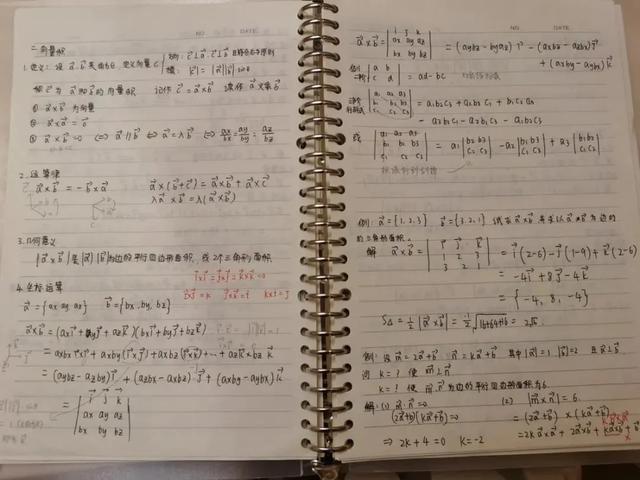 二 向量积
1.定义: 设 a⃗. b⃗ 夹角为θ, 定义向量 c⃗ 方向: c⃗⊥a⃗ c⃗⊥b⃗ 且符合右手法则
模: |c⃗| = |a⃗||b⃗| sinθ
称 c⃗ 为 a⃗ 和 b⃗ 的向量积. 记作 c⃗ = a⃗×b⃗ 读作 a⃗ 叉乘 b⃗
① a⃗×b⃗ 为向量
② a⃗×a⃗ = 0⃗
③ a⃗×b⃗ =0 ⇔ a⃗∥b⃗ ⇔ a⃗=λb⃗ ⇔ ax/bx = ay/by = az/bz
2. 运算律
a⃗×b⃗ = -b⃗×a⃗ a⃗×(b⃗+c⃗) = a⃗×b⃗ + a⃗×c⃗
λa⃗ × b⃗ = λ(a⃗×b⃗)
3.几何意义
|a⃗×b⃗| 是 |a⃗| |b⃗| 为边的平行四边形面积, 或2个三角形面积
i⃗×i⃗ = j⃗×j⃗ = k⃗×k⃗ = 0
4.坐标运算 i⃗×j⃗=k j⃗×k⃗=i k×i=j
a⃗ = {ax ay az} b⃗ = {bx, by, bz}
a⃗×b⃗ = (ax i⃗ + ay j⃗ + az k⃗)(bx i⃗ + by j⃗ + bz k⃗)
= axbx i⃗×i⃗ + axby (i⃗×j⃗) + axbz (i⃗×k⃗) + … + azbz k⃗×k⃗
= (aybz - azby) i⃗ + (azbx - axbz) j⃗ + (axby - aybx) k⃗
= | i⃗ j⃗ k⃗ |
ax ay az
bx by bz
a⃗×b⃗ = | i j k |
ax ay az
bx by bz
= (aybz - byaz) i⃗ - (axbz - azbx) j⃗
+ (axby - aybx) k⃗
二阶 | a b |
| c d | = ad - bc
| a1 a2 a3 |
| b1 b2 b3 |
| c1 c2 c3 | = a1b2c3 + a2b3c1 + b1c2a3
- a3b2c1 - a2b1c3 - a1b3c2
或 | a1 a2 a3 |
| b1 b2 b3 |
| c1 c2 c3 | = a1 | b2 b3 c2 c3 | - a2 | b1 b3 c1 c3 | + a3 | b1 b2 c1 c2 |
例: a⃗ = {1, 2, 3} b⃗ = {3, 2, 1} 试求 a⃗×b⃗ 并求以 a⃗ 和 b⃗ 为边的
三角形面积.
解 a⃗×b⃗ = | i⃗ j⃗ k⃗ |
1 2 3
3 2 1
= i⃗(2-6) - j⃗(1-9) + k⃗(2-6)
= -4i⃗ + 8j⃗ - 4k⃗
= {-4, 8, -4}
S△ = 1/2 |a⃗×b⃗| = 1/2 √16+64+16 = 2√6
例: 设 m⃗ = 2a⃗+b⃗ n⃗ = ka⃗+b⃗ 其中 |a⃗|=1 |b⃗|=2 且 a⃗⊥b⃗
问 k=? 使 m⃗⊥n⃗
k=? 使 m⃗. n⃗ 为边的平行四边形面积为6.
解: (1) m⃗·n⃗ =0 (2) |m⃗×n⃗| = 6
(2a⃗+b⃗)(ka⃗+b⃗)=0 = (2a⃗+b⃗) × (ka⃗+b⃗)
⇒ 2k+4=0 k=-2 =2k a⃗×a⃗ + 2a⃗×b⃗ +